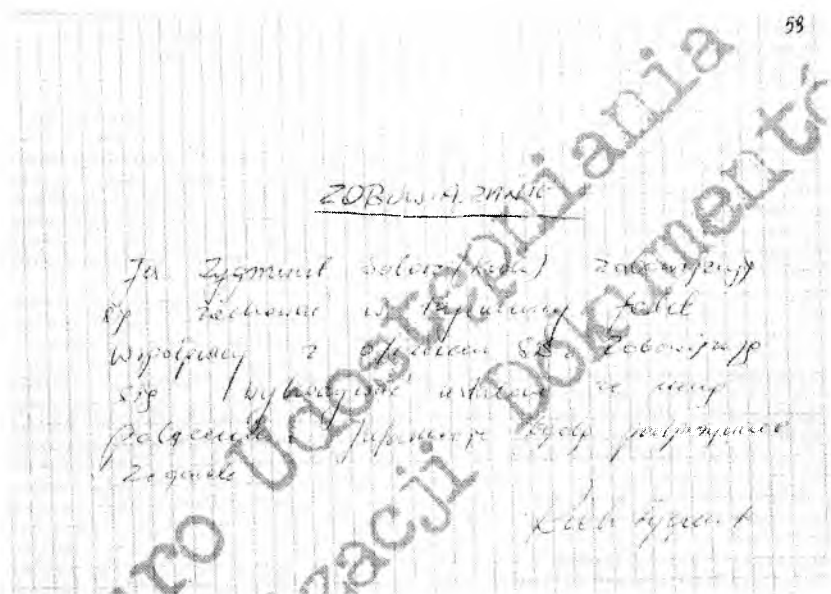 59
ZOBOWIĄZANIE
Ja Zygmunt Solorz (Krok) zobowiązuję
się zachować w tajemnicy fakt
współpracy z oficerem SB. Zobowiązuję
się wykonywać ustalone ze mną
polecenia. Informacje będę podpisywał
Zegarek
Krok Zygmunt
ro Udostępniania
zacji Dokumentó